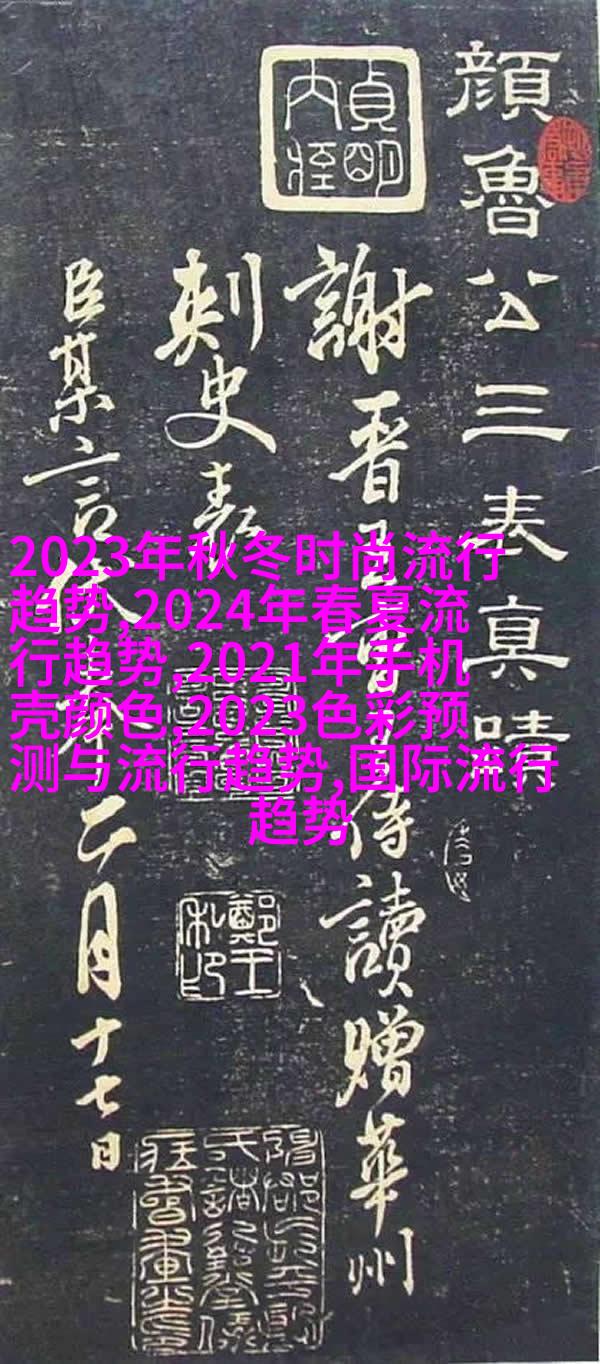 顔魯公三表真蹟
謝晉王曹王侍讀贈華州
刺史表
臣某言伏奉二月十七日
鄭王
2023年秋冬时尚流行
趋势,2024年春夏流
行趋势,2021年手机
壳颜色,2023色彩预
测与流行趋势,国际流行
趋势